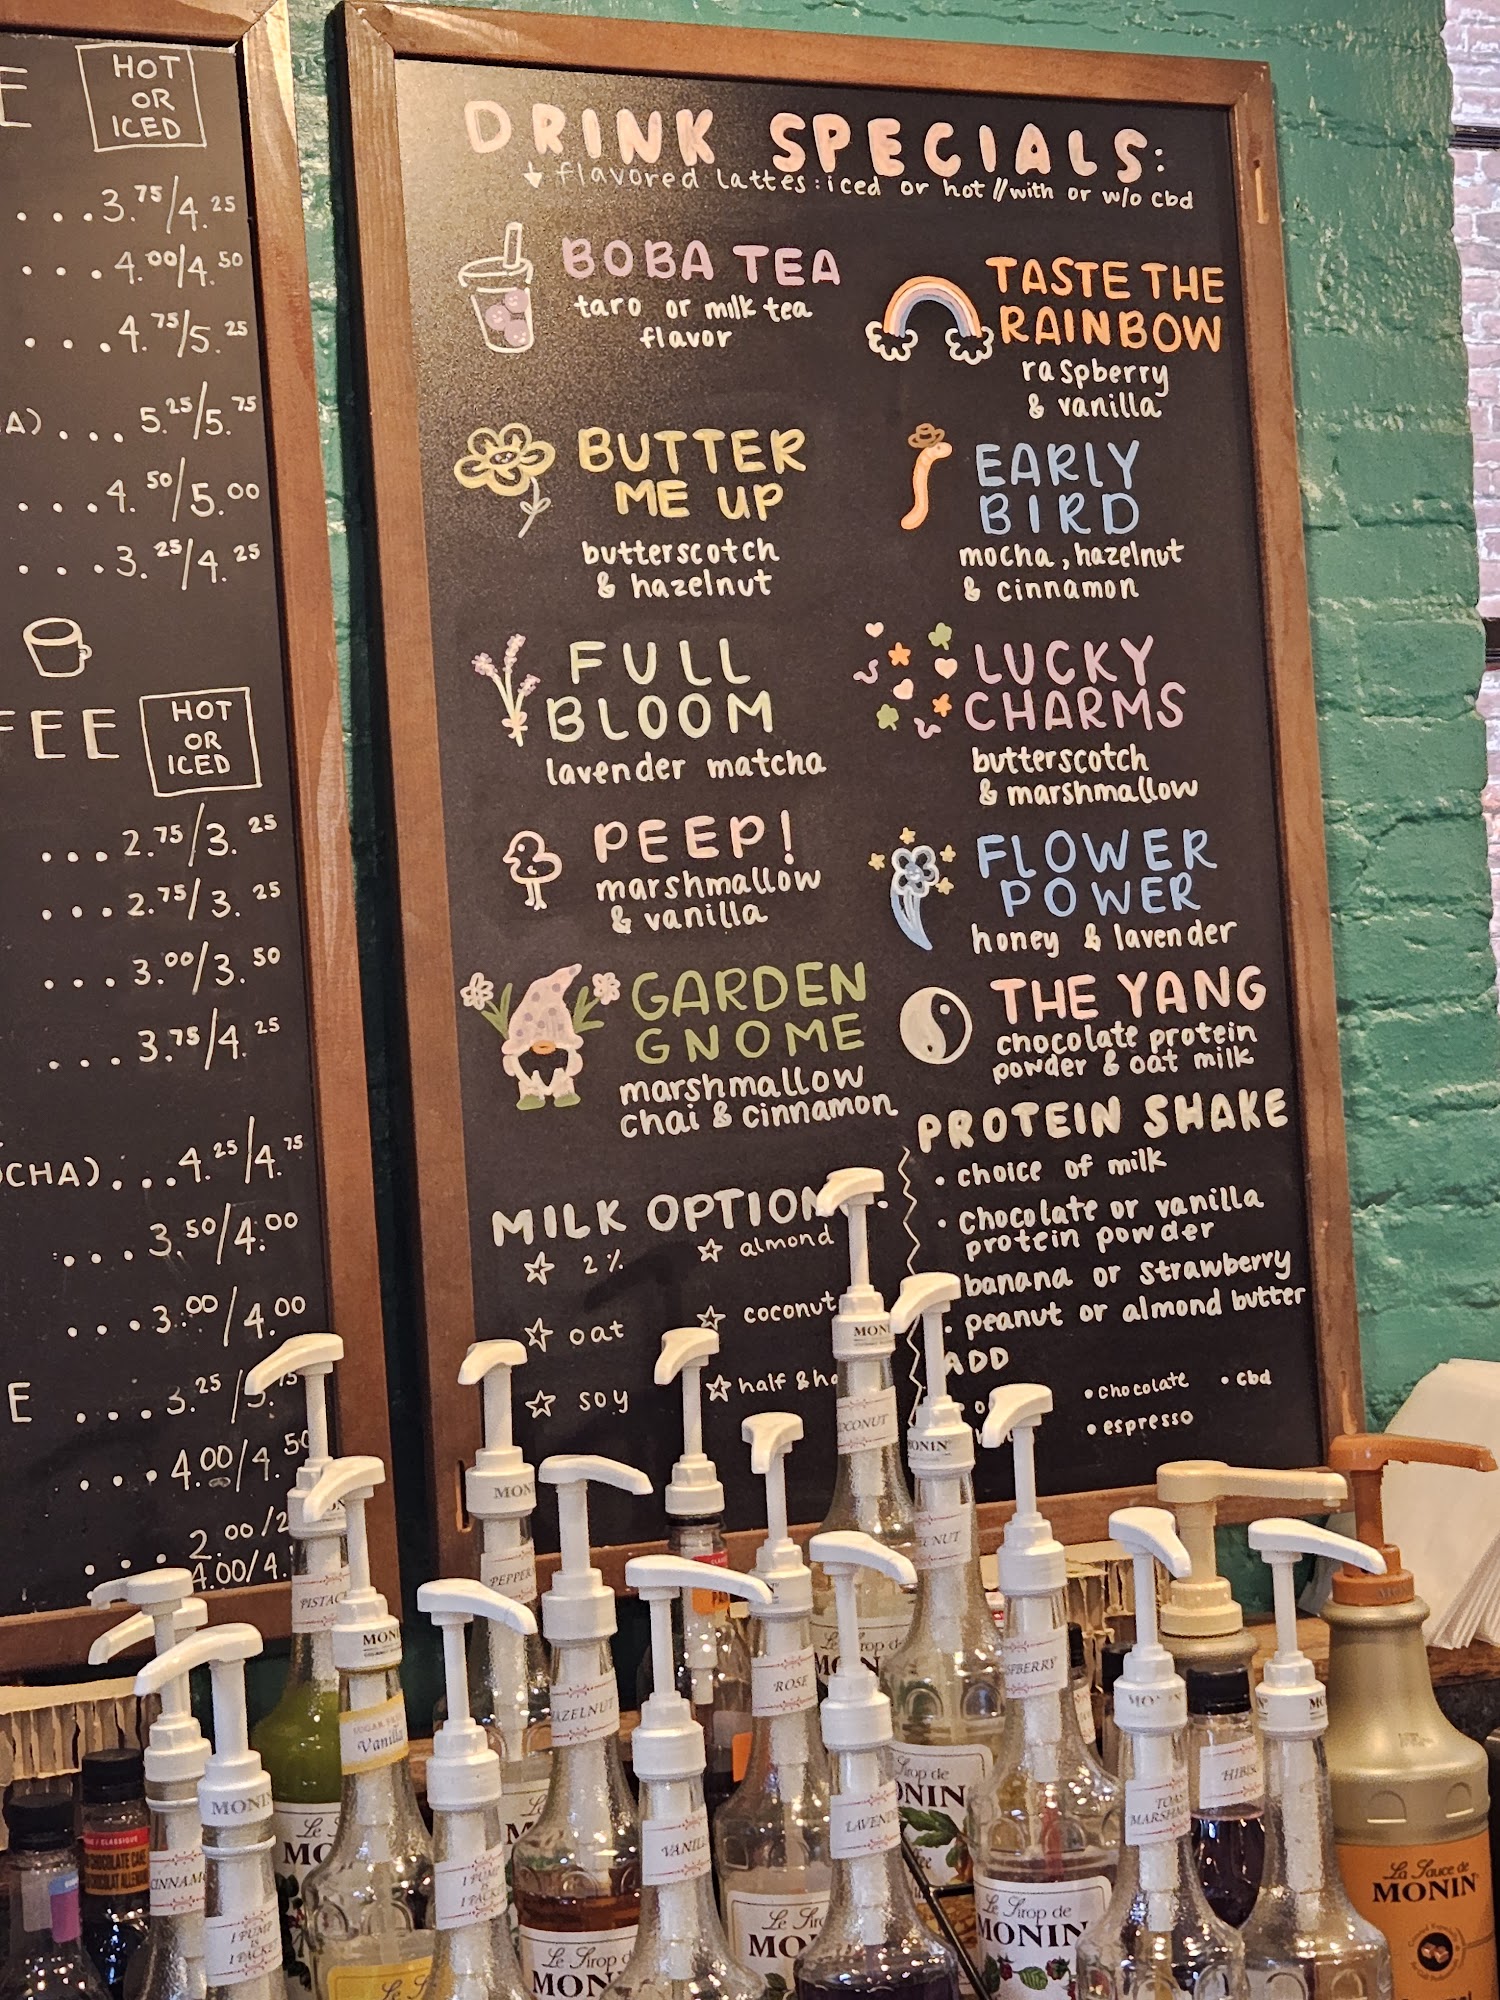 HOT
OR
ICED
...3.75/4.25
...4.00/4.50
...4.75/5.25
A)...5.25/5.75
...4.50/5.00
...3.25/4.25
FEE
HOT
OR
ICED
...2.75/3.25
...2.75/3.25
...3.00/3.50
...3.75/4.25
CHA)...4.25/4.75
...3.50/4.00
...3.00/4.00
E ...3.25/
...4.00/4.50
...2.00/2
4.00/4.
DRINK SPECIALS:
↓ flavored lattes: iced or hot // with or w/o cbd
BOBA TEA
taro or milk tea
flavor
TASTE THE
RAINBOW
raspberry
& vanilla
BUTTER
ME UP
butterscotch
& hazelnut
EARLY
BIRD
mocha, hazelnut
& cinnamon
FULL
BLOOM
lavender matcha
LUCKY
CHARMS
butterscotch
& marshmallow
PEEP!
marshmallow
& vanilla
FLOWER
POWER
honey & lavender
GARDEN
GNOME
marshmallow
chai & cinnamon
THE YANG
chocolate protein
powder & oat milk
MILK OPTION
☆ 2% ☆ almond
☆ oat ☆ coconut
☆ soy ☆ half & ha
PROTEIN SHAKE
• choice of milk
• chocolate or vanilla
protein powder
banana or strawberry
• peanut or almond butter
ADD
• chocolate • cbd
• espresso
MONI
OCONUT
MONIN
NUT
PISTAC
MONI
PEPPER
MONI
SUGAR FREE
Vanilla
HAZELNUT
ROSE
SPBERRY
CINNAM
MONIN
1 PUMP
1 PACKET
1 PUMP
1 PACKE
VANILL
LAVEND
TOAS
MARSHM
HIBIS
CLASSIQUE
CHOCOLATE CAKE
CHOCOLAT ALLEMAN
Le Si
MO
Le Sirop d
MONI
Le Siro
MO
Le Sirop d
MONIN
Sirop de
ONIN
Le Sirop de
MONIN
La Sauce de
MONIN